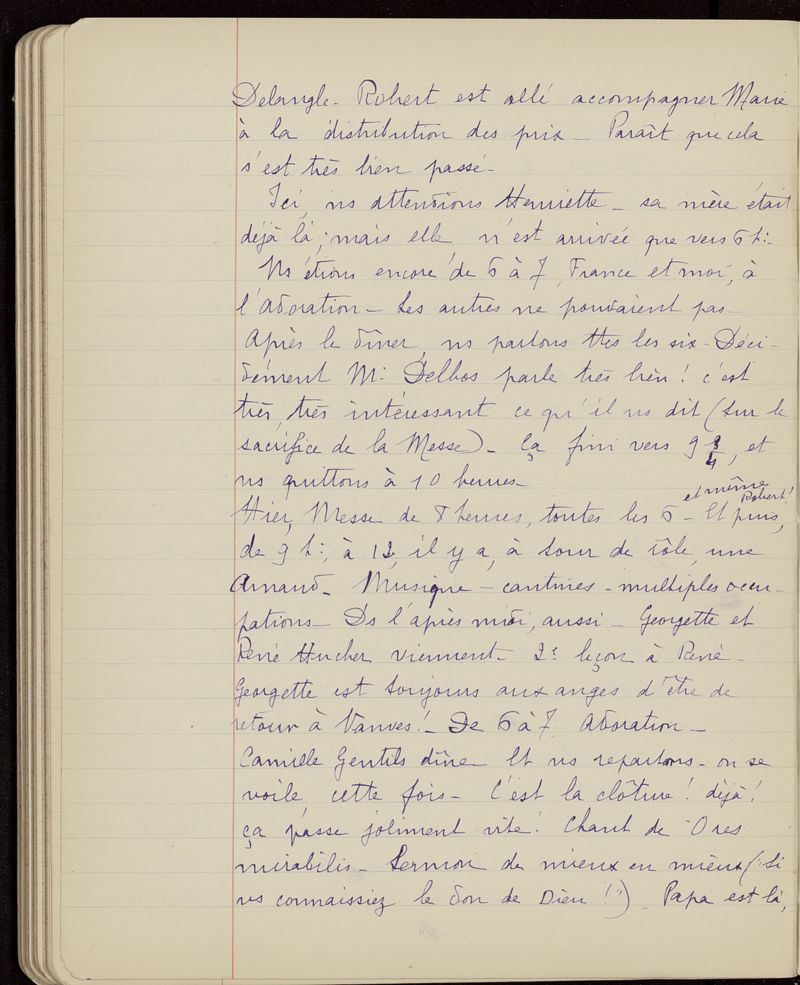 Delangle - Robert est allé accompagner Marie
à la distribution des prix - Paraît que cela
s'est très bien passé -
Ici, ns attendions Henriette - sa mère était
déjà là ; mais elle n'est arrivée que vers 6 h :
Ns étions encore de 6 à 7, France et moi, à
l'Adoration - Les autres ne pouvaient pas -
Après le dîner, ns partons ttes les six - Déci-
dément Mr Delbos parle très bien ! c'est
très, très intéressant ce qu'il ns dit (sur le
sacrifice de la Messe) - Ça fini vers 9 3/4, et
ns quittons à 10 heures -
et même Robert !
Hier, Messe de 8 heures, toutes les 6 - Et puis,
de 9 h :, à 12, il y a, à tour de rôle, une
Arnaud - Musique - cantines - multiples occu-
pations - Ds l'après midi, aussi - Georgette et
René Hucher viennent - 2e leçon à René -
Georgette est toujours aux anges d'être de
retour à Vanves ! - De 6 à 7 Adoration -
Camille Gentils dîne - Et ns repartons - on se
voile, cette fois - C'est la clôture ! déjà !
ça passe joliment vite ! Chant de O res
mirabilis - Sermon de mieux en mieux ("Si
vs connaissiez le don de Dieu !") Papa est là,